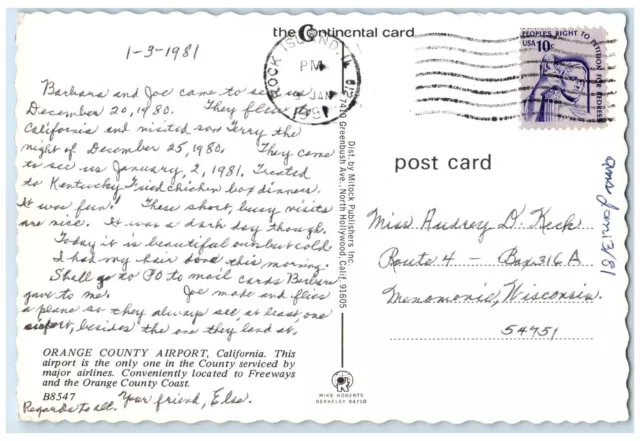 the Continental card
1-3-1981
ROCK ISLAND, IL 612
PM
JAN
1981
PEOPLE'S RIGHT TO PETITION FOR REDRESS
USA 10c
Barbara and Joe came to see us
December 20, 1980. They flew to
California and visited son Terry the
night of December 25, 1980. They came
to see us January 2, 1981. Treated
to Kentucky Fried Chicken box dinners.
It was fun! These short, busy visits
are nice. It was a dark day though.
Today it is beautiful out but cold
I had my hair done this morning.
Shall go to PO to mail cards Barbara
gave to me. Joe made and flies
a plane so they always see, at least, one
airport, besides the one they land at.
ORANGE COUNTY AIRPORT, California. This
airport is the only one in the County serviced by
major airlines. Conveniently located to Freeways
and the Orange County Coast.
B8547
Your friend, Else.
Regards to all.
Dist. by Mitock Publishers Inc.
7410 Greenbush Ave., North Hollywood, Calif. 91605
MIKE ROBERTS
BERKELEY 94710
post card
Miss Audrey D. Keck
Route 4 - Box 316 A
Menomonie, Wisconsin.
54751
ans Jan 13/81